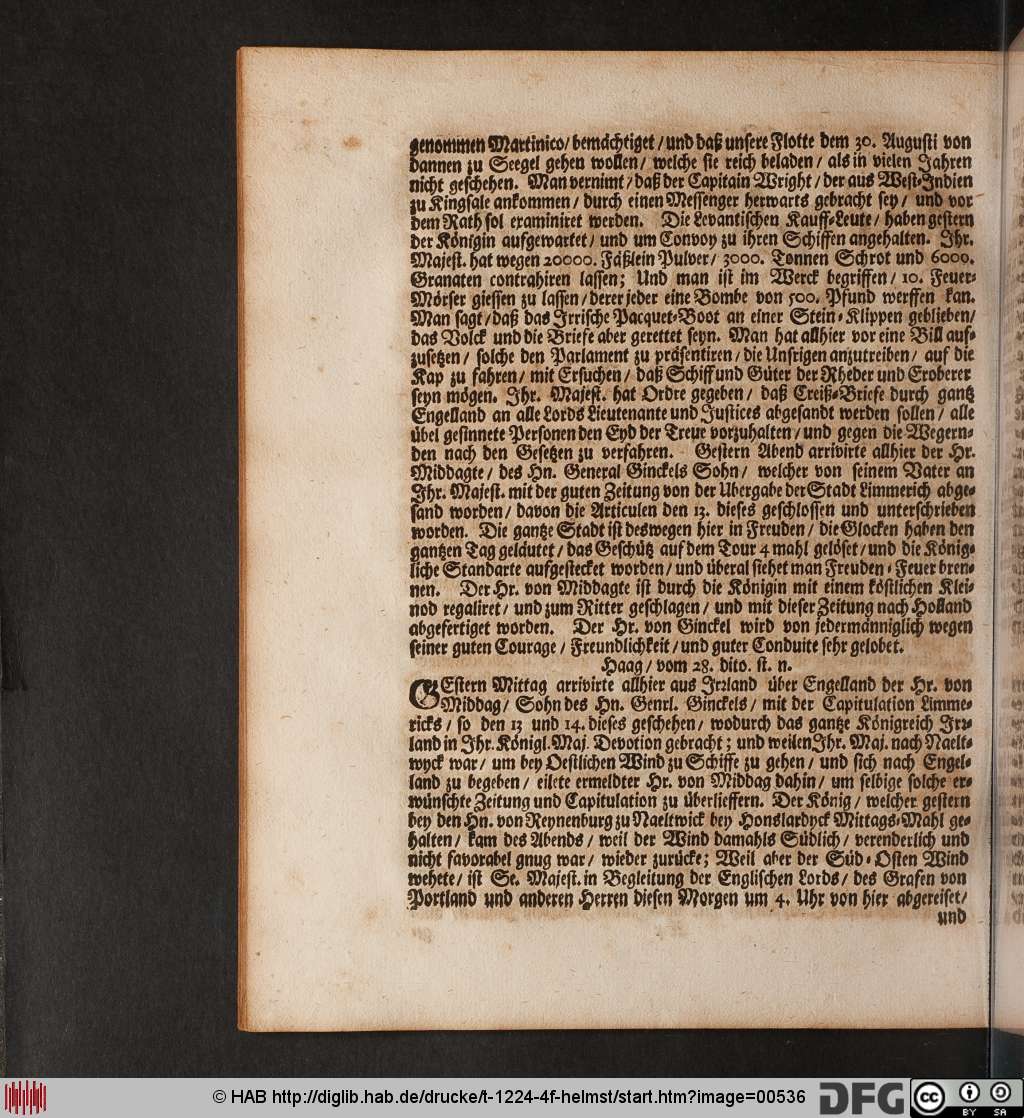 genommen Martinico/ bemächtiget / und daß unsere Flotte dem 30. Augusti von
dannen zu Seegel gehen wollen/ welche sie reich beladen/ als in vielen Jahren
nicht geschehen. Man vernimt/ daß der Capitain Wright/ der aus West-Indien
zu Kingsale ankommen / durch einen Messenger herwarts gebracht sey/ und vor
dem Rath sol examiniret werden. Die Levantischen Kauff-Leute/ haben gestern
der Königin aufgewartet/ und um Convoy zu ihren Schiffen angehalten. Ihr.
Majest. hat wegen 20000. Fäßlein Pulver/ 3000. Tonnen Schrot und 6000.
Granaten contrahiren lassen; Und man ist im Werck begriffen/ 10. Feuer-
Mörser giessen zu lassen/ derer jeder eine Bombe von 500. Pfund werffen kan.
Man sagt/ daß das Irrische Pacquet-Boot an einer Stein-Klippen geblieben/
das Volck und die Briefe aber gerettet seyn. Man hat allhier vor eine Bill auf-
zusetzen/ solche den Parlament zu präsentiren/ die Unsrigen anzutreiben/ auf die
Kap zu fahren/ mit Ersuchen/ daß Schiff und Güter der Rheder und Eroberer
seyn mögen. Ihr. Majest. hat Ordre gegeben/ daß Creiß-Briefe durch gantz
Engelland an alle Lords Lieutenante und Justices abgesandt werden sollen/ alle
übel gesinnete Personen den Eyd der Treue vorzuhalten/ und gegen die Wegern-
den nach den Gesetzen zu verfahren. Gestern Abend arrivirte allhier der Hr.
Middagte/ des Hn. General Ginckels Sohn/ welcher von seinem Vater an
Ihr. Majest. mit der guten Zeitung von der Ubergabe der Stadt Limmerich abge-
sand worden/ davon die Articulen den 13. dieses geschlossen und unterschrieben
worden. Die gantze Stadt ist deswegen hier in Freuden/ die Glocken haben den
gantzen Tag geläutet/ das Geschütz auf dem Tour 4 mahl gelöset/ und die König-
liche Standarte aufgestecket worden/ und überal siehet man Freuden-Feuer bren-
nen. Der Hr. von Middagte ist durch die Königin mit einem köstlichen Klei-
nod regaliret/ und zum Ritter geschlagen/ und mit dieser Zeitung nach Holland
abgefertiget worden. Der Hr. von Ginckel wird von jedermänniglich wegen
seiner guten Courage/ Freundlichkeit/ und guter Conduite sehr gelobet.
Haag/ vom 28. dito. st. n.
GEstern Mittag arrivirte allhier aus Irrland über Engelland der Hr. von
Middag/ Sohn des Hn. Genrl. Ginckels/ mit der Capitulation Limme-
ricks/ so den 13 und 14. dieses geschehen/ wodurch das gantze Königreich Irr-
land in Ihr. Königl. Maj. Devotion gebracht; und weilen Ihr. Maj. nach Naelt-
wyck war/ um bey Oestlichen Wind zu Schiffe zu gehen/ und sich nach Engel-
land zu begeben/ eilete ermeldter Hr. von Middag dahin/ um selbige solche er-
wünschte Zeitung und Capitulation zu überlieffern. Der König/ welcher gestern
bey den Hn. von Reynenburg zu Naeltwick bey Honslardyck Mittags-Mahl ge-
halten/ kam des Abends/ weil der Wind damahls Südlich/ verenderlich und
nicht favorabel gnug war/ wieder zurücke; Weil aber der Süd-Osten Wind
wehete/ ist Se. Majest. in Begleitung der Englischen Lords/ des Grafen von
Portland und anderen Herren diesen Morgen um 4. Uhr von hier abgereiset/
und
© HAB http://diglib.hab.de/drucke/t-1224-4f-helmst/start.htm?image=00536
DFG
cc
BY SA